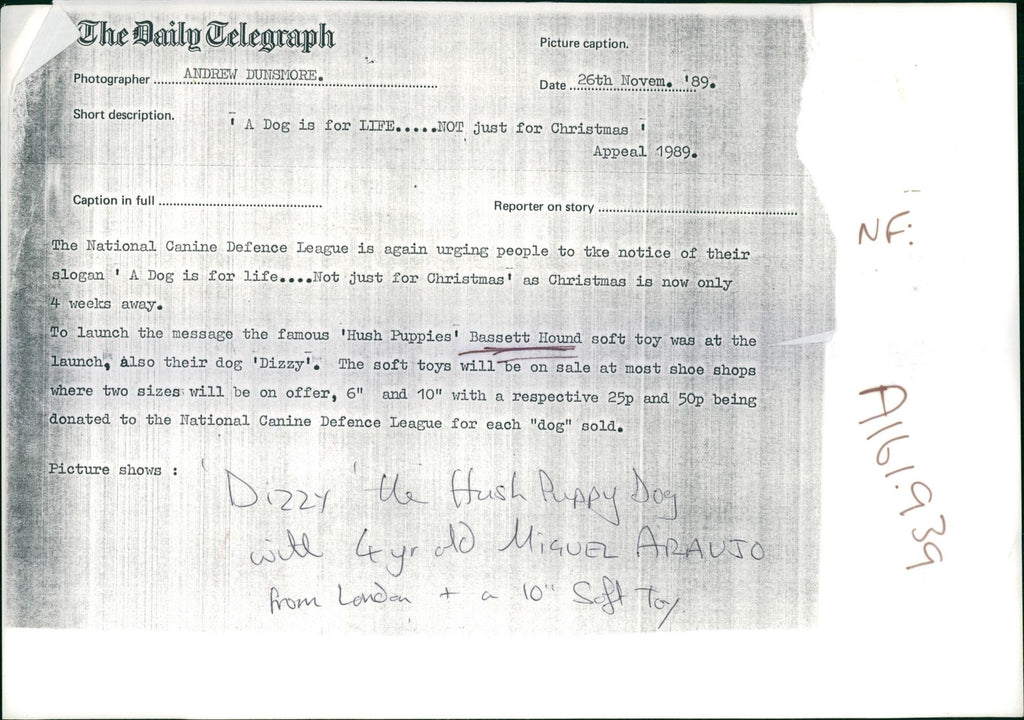 The Daily Telegraph
Picture caption.
Photographer ANDREW DUNSMORE.
Date 26th Novem. '89.
Short description.
' A Dog is for LIFE.....NOT just for Christmas '
Appeal 1989.
Caption in full
Reporter on story
The National Canine Defence League is again urging people to tke notice of their
slogan ' A Dog is for life....Not just for Christmas' as Christmas is now only
4 weeks away.
To launch the message the famous 'Hush Puppies' Bassett Hound soft toy was at the
launch, also their dog 'Dizzy'. The soft toys will be on sale at most shoe shops
where two sizes will be on offer, 6" and 10" with a respective 25p and 50p being
donated to the National Canine Defence League for each "dog" sold.
Picture shows :
'Dizzy' the Hush Puppy Dog
with 4 yr old MIGUEL ARAUJO
from London + a 10" Soft Toy
NF:
A161.939